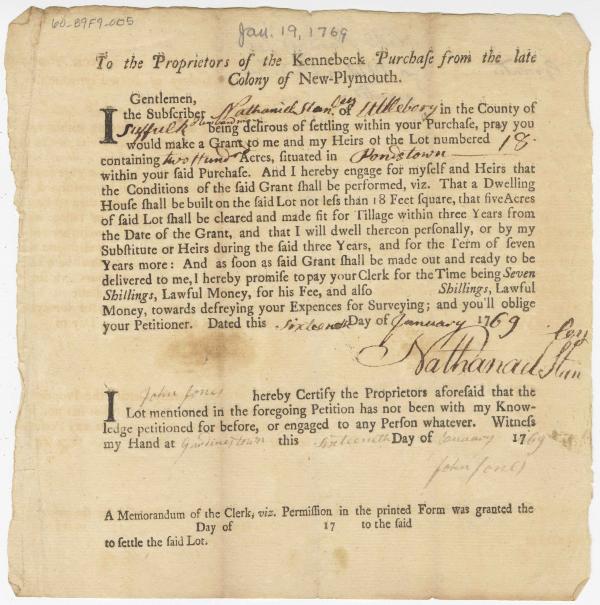 60-B9F9-005
Jan. 19, 1769
To the Proprietors of the Kennebeck Purchaſe from the late
Colony of New-Plymouth.
Gentlemen,
I the Subſcriber Nathaniel Stanley of Attlebory in the County of
Suffulk Husbandman being deſirous of ſettling within your Purchaſe, pray you
would make a Grant to me and my Heirs of the Lot numbered 18
containing two Hund Acres, ſituated in Pondstown
within your ſaid Purchaſe. And I hereby engage for myſelf and Heirs that
the Conditions of the ſaid Grant ſhall be performed, viz. That a Dwelling
Houſe ſhall be built on the ſaid Lot not leſs than 18 Feet ſquare, that five Acres
of ſaid Lot ſhall be cleared and made fit for Tillage within three Years from
the Date of the Grant, and that I will dwell thereon perſonally, or by my
Subſtitute or Heirs during the ſaid three Years, and for the Term of ſeven
Years more: And as ſoon as ſaid Grant ſhall be made out and ready to be
delivered to me, I hereby promiſe to pay your Clerk for the Time being Seven
Shillings, Lawful Money, for his Fee, and alſo Shillings, Lawful
Money, towards defreying your Expences for Surveying; and you'll oblige
your Petitioner. Dated this Sixteenth Day of January 1769
Nathanael Stanley
I John Jones hereby Certify the Proprietors aforeſaid that the
Lot mentioned in the foregoing Petition has not been with my Know-
ledge petitioned for before, or engaged to any Perſon whatever. Witneſs
my Hand at Gardinerstown this Sixteenth Day of January 1769
John Jones
A Memorandum of the Clerk, viz. Permiſſion in the printed Form was granted the
Day of 17 to the ſaid
to ſettle the ſaid Lot.